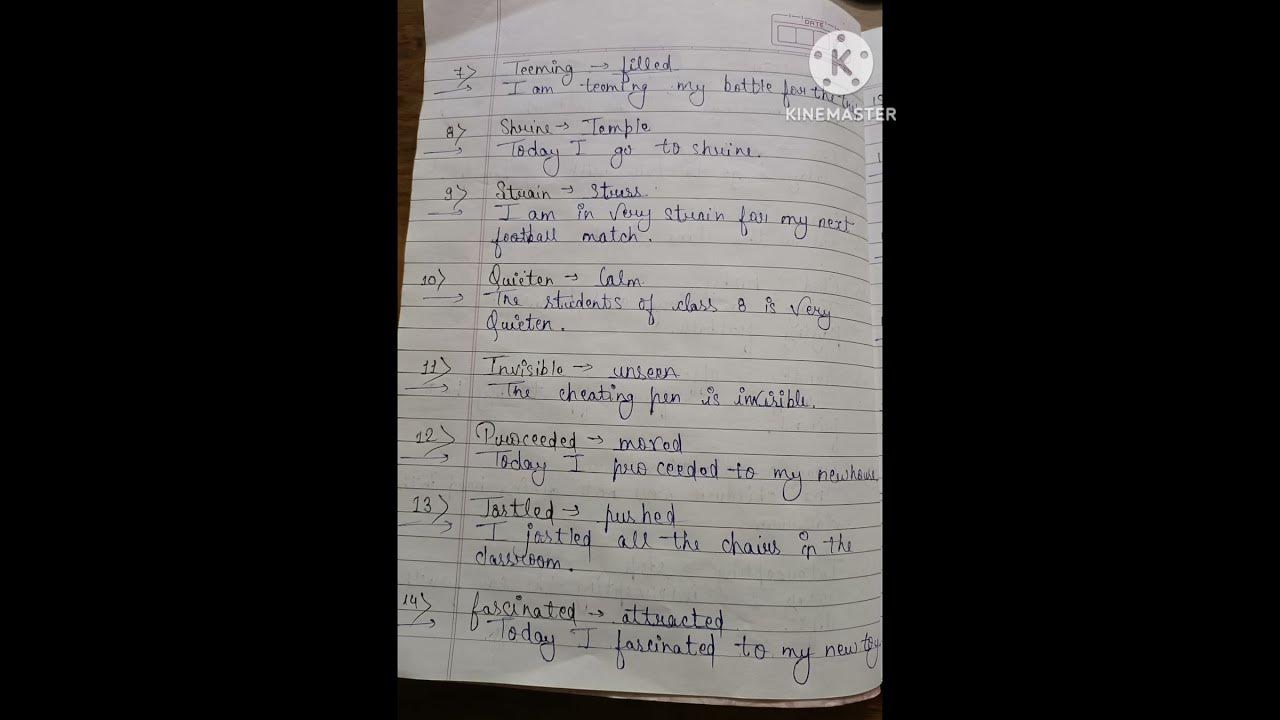 DATE
KINEMASTER
7> Teeming → filled
I am teeming my bottle for the
8> Shrine → Temple
Today I go to shrine.
9> Strain → stress
I am in very strain for my next
football match.
10> Quieten → Calm
The students of class 8 is very
Quieten.
11> Invisible → unseen
The cheating pen is invisible.
12> Proceeded → moved
Today I proceeded to my new house
13> Jostled → pushed
I jostled all the chairs in the
classroom.
14> fascinated → attracted
Today I fascinated to my new toy